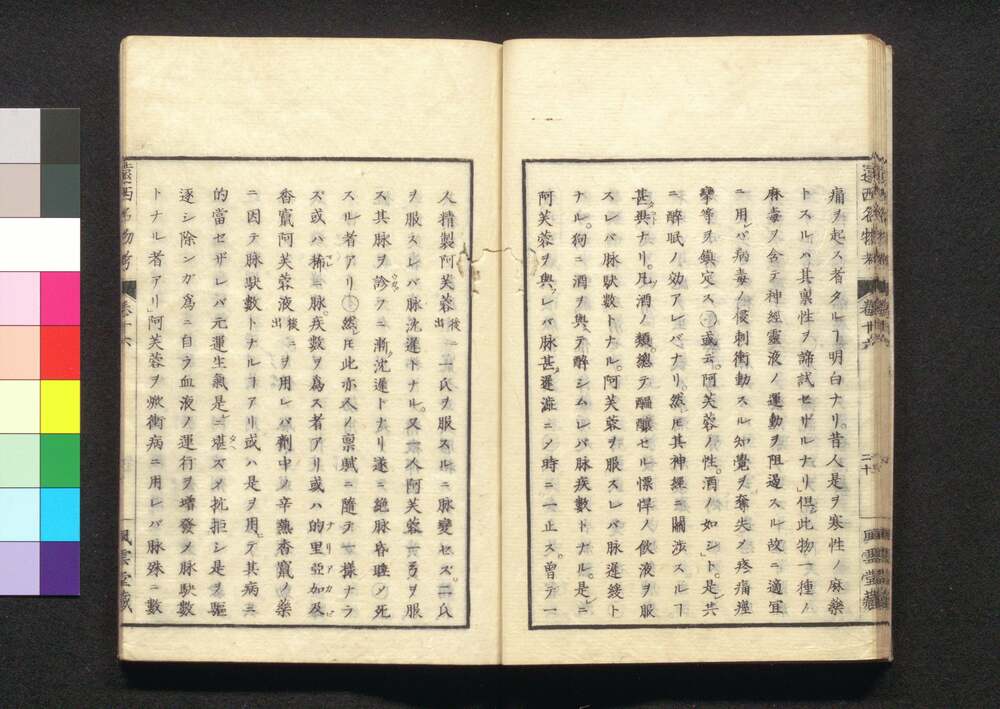 痛ヲ起ス者タルヿ明白ナリ。昔人是ヲ寒性ノ麻藥
トスルハ其禀性ヲ諦試セザルナリ」但此物一種ノ
麻毒ヲ含テ神經靈液ノ運動ヲ阻遏スル故ニ適宜
ニ用レバ病毒ノ侵刺衝動スル知覺ヲ奪失メ疼痛痙
攣等ヲ鎮定ス㊀或云。阿芙蓉ノ性。酒ノ如シ」ト。是レ共
ニ醉眠ノ効アレバナリ。然レ𪜈其神經ニ關渉スルヿ
甚異ナリ。凡酒ノ類總テ醞釀セル慓悍ノ飲液ヲ服
スレバ脉駃數トナル。阿芙蓉ヲ服スレバ脉遲緩ト
ナル。狗ニ酒ヲ與テ醉シムレバ脉疾數トナル。是レニ
阿芙蓉ヲ與レバ脉甚遲澁ニメ時ニ一止ス。曾テ一
人精製阿芙蓉後出二氏ヲ服スルニ脉變セズ。二氏
ヲ服スレバ脉沈遲トナル。又一人阿芙蓉六弓ヲ服
ス其脉ヲ診フニ漸沈遲トナリ遂ニ絶脉昏睡メ死
スル者アリ㊀然レ𪜈此亦人ノ禀賦ニ隨テ一樣ナラ
ズ或ハ稀ニ脉疾數ヲ爲ス者アリ或ハ的里亞加及
香竄阿芙蓉液後出ニヲ用レバ劑中ノ辛熱香竄ノ藥
ニ因テ脉駃數トナルヿアリ或ハ是ヲ用テ其病ニ
的當セザレバ元運生氣是レニ堪ズメ抗拒シ是ヲ驅
逐シ除ンガ爲ニ自ラ血液ノ運行ヲ增發メ脉駃數
トナル者アリ」阿芙蓉ヲ焮衝病ニ用レバ脉殊ニ數
卷十六
風雲堂藏